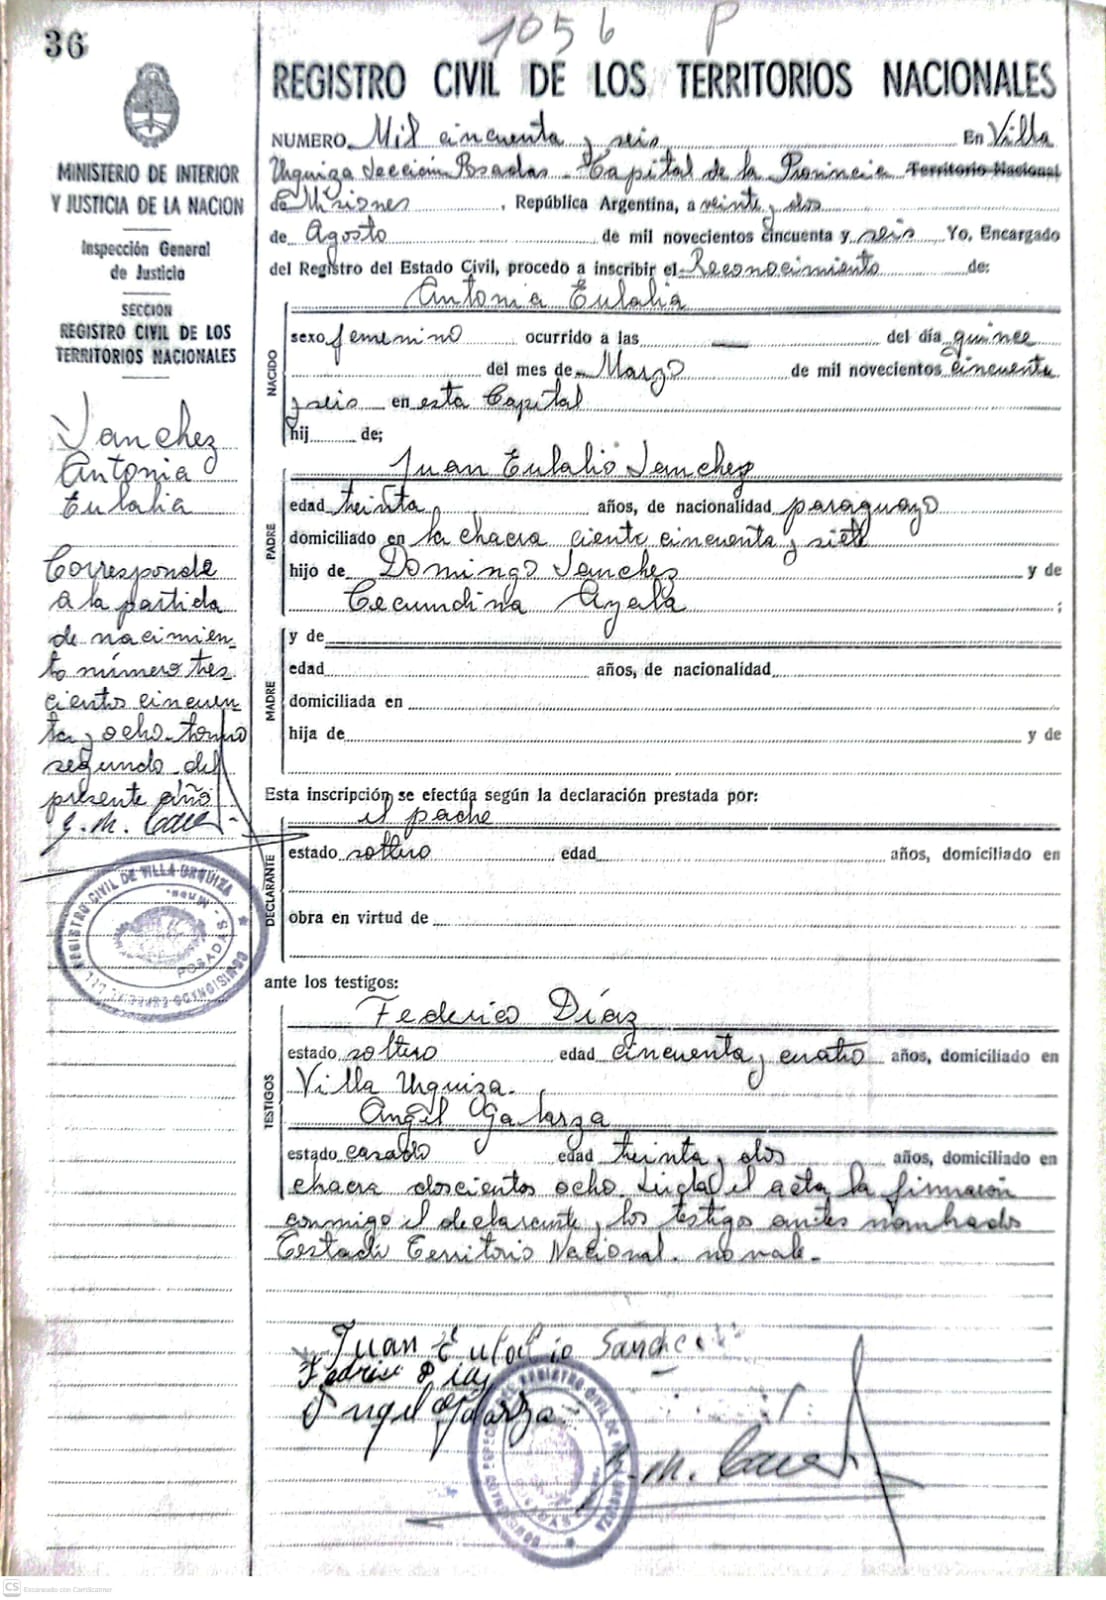 1056 P
36
REGISTRO CIVIL DE LOS TERRITORIOS NACIONALES
NUMERO Mil cincuenta y seis En Villa
Urquiza Sección Posadas - Capital de la Provincia Territorio Nacional
de Misiones, República Argentina, a veinte y dos
de Agosto de mil novecientos cincuenta y seis Yo, Encargado
del Registro del Estado Civil, procedo a inscribir el Reconocimiento de:
MINISTERIO DE INTERIOR
Y JUSTICIA DE LA NACION
Inspección General
de Justicia
SECCION
REGISTRO CIVIL DE LOS
TERRITORIOS NACIONALES
Sanchez
Antonia
Eulalia
Corresponde
a la partida
de nacimien-
to número tres
cientos cincuen
ta y ocho tomo
segundo del
presente año
REGISTRO CIVIL DE VILLA URQUIZA
POSADAS
NACIDO
Antonia Eulalia
sexo femenino ocurrido a las — del día quince
del mes de Marzo de mil novecientos cincuenta
y seis en esta Capital
hij de;
PADRE
Juan Eulalio Sanchez
edad treinta años, de nacionalidad paraguayo
domiciliado en la chacra ciento cincuenta y siete
hijo de Domingo Sanchez y de
Cecundina Ayala ;
MADRE
y de
edad años, de nacionalidad
domiciliada en
hija de y de
Esta inscripción se efectúa según la declaración prestada por:
DECLARANTE
el padre
estado soltero edad años, domiciliado en
obra en virtud de
ante los testigos:
TESTIGOS
Federico Díaz
estado soltero edad cincuenta y cuatro años, domiciliado en
Villa Urquiza.
Angel Galarza
estado casado edad treinta y dos años, domiciliado en
chacra doscientos ocho. el acta la firmaron
conmigo el declarante y los testigos antes nombrados
Testado Territorio Nacional. no vale.-
Juan Eulalio Sanchez
Federico Diaz
Angel Galarza
CS Escaneado con CamScanner